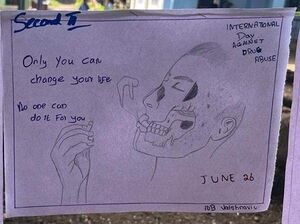 Second II
INTERNATIONAL
Day
AGAINST
DRUG
ABUSE
Only You can
change your life
No one can
do it For you
JUNE 26